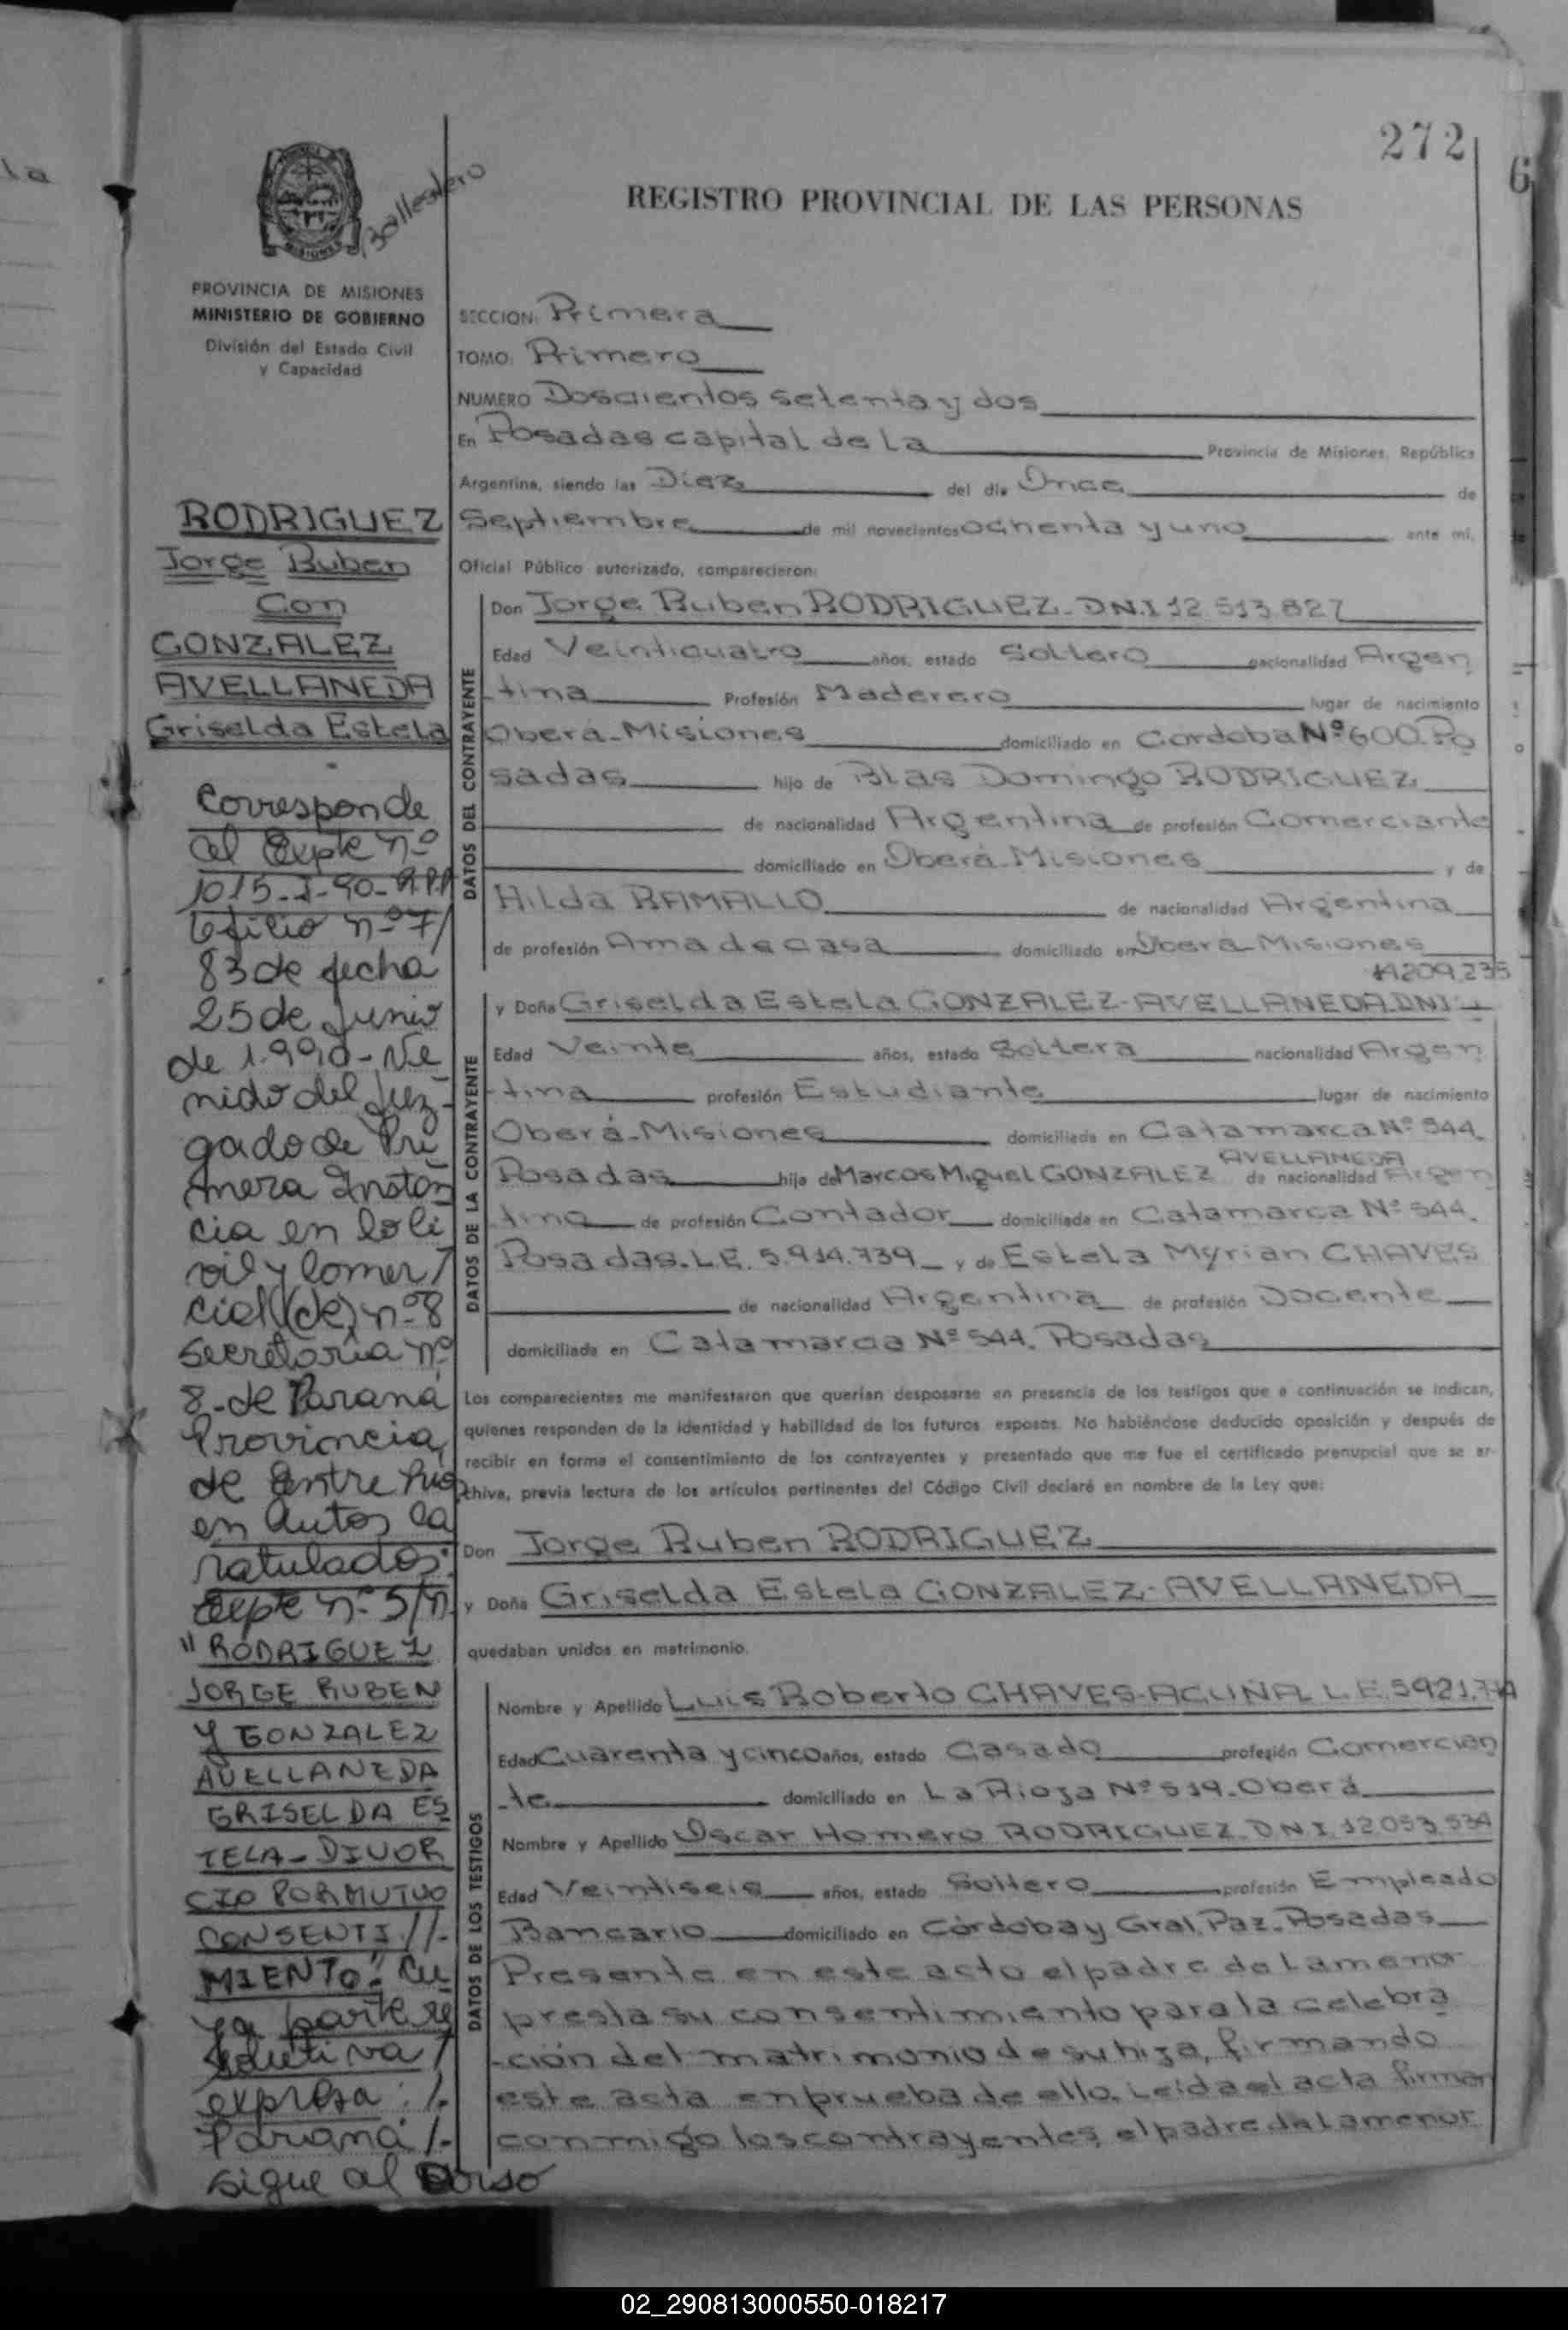 272
Ballestero
MISIONES
REGISTRO PROVINCIAL DE LAS PERSONAS
PROVINCIA DE MISIONES
MINISTERIO DE GOBIERNO
División del Estado Civil
y Capacidad
RODRIGUEZ
Jorge Ruben
Con
GONZALEZ
AVELLANEDA
Griselda Estela
Corresponde
al Expte nº
1015-I-90-R.P.P
Oficio nº 7/
83 de fecha
25 de Junio
de 1.990-Ve
nido del Juz-
gado de Pri
mera Instan
cia en lo Ci
vil y Comer/
cial (de) nº 8
Secretaría nº
8-de Paraná
Provincia,
de Entre Rios
en Autos ca
ratulados:
Expte nº S/n.
"RODRIGUEZ
JORGE RUBEN
Y GONZALEZ
AVELLANEDA
GRISELDA ES
TELA-DIVOR
CIO POR MUTUO
CONSENTI//-
MIENTO". Cu
ya parte re
solutiva/
expresa: /-
Paraná /-
sigue al Dorso
SECCION: Primera
TOMO: Primero
NUMERO Doscientos setenta y dos
En Posadas capital de la Provincia de Misiones, República
Argentina, siendo las Diez del día Once de
Septiembre de mil novecientos ochenta y uno ante mí,
Oficial Público autorizado, comparecieron:
DATOS DEL CONTRAYENTE
Don Jorge Ruben RODRIGUEZ-DN.I 12.513.827
Edad Veinticuatro años, estado Soltero nacionalidad Argen
-tina Profesión Maderero lugar de nacimiento
Oberá-Misiones domiciliado en Cordoba Nº 600. Po
sadas hijo de Blas Domingo RODRIGUEZ
de nacionalidad Argentina de profesión Comerciante
domiciliado en Oberá-Misiones y de
Hilda RAMALLO de nacionalidad Argentina
de profesión Ama de casa domiciliado en Oberá-Misiones
14.209.235
DATOS DE LA CONTRAYENTE
y Doña Griselda Estela GONZALEZ-AVELLANEDA.DNI
Edad Veinte años, estado Soltera nacionalidad Argen
-tina profesión Estudiante lugar de nacimiento
Oberá-Misiones domiciliada en Catamarca Nº 544.
AVELLANEDA
Posadas hija de Marcos Miguel GONZALEZ de nacionalidad Argen
-tina de profesión Contador domiciliado en Catamarca Nº 544.
Posadas.L.E. 5.914.739 y de Estela Myrian CHAVES
de nacionalidad Argentina de profesión Docente
domiciliada en Catamarca Nº 544. Posadas
Los comparecientes me manifestaron que querían desposarse en presencia de los testigos que a continuación se indican,
quienes responden de la identidad y habilidad de los futuros esposos. No habiéndose deducido oposición y después de
recibir en forma el consentimiento de los contrayentes y presentado que me fue el certificado prenupcial que se ar-
chiva, previa lectura de los artículos pertinentes del Código Civil declaré en nombre de la Ley que:
Don Jorge Ruben RODRIGUEZ
y Doña Griselda Estela GONZALEZ-AVELLANEDA
quedaban unidos en matrimonio.
DATOS DE LOS TESTIGOS
Nombre y Apellido Luis Roberto CHAVES-ACUÑA L.E.
Edad Cuarenta y cinco años, estado Casado profesión Comercian
-te domiciliado en La Rioja Nº 519-Oberá
Nombre y Apellido Oscar Homero RODRIGUEZ-DNI. 12.053.534
Edad Veintiseis años, estado Soltero profesión Empleado
Bancario domiciliado en Córdoba y Gral. Paz-Posadas
Presente en este acto el padre de la menor
presta su consentimiento para la celebra
-ción del matrimonio de su hija, firmando
este acta en prueba de ello. Leída el acta firman
conmigo los contrayentes, el padre de la menor
02_290813000550-018217